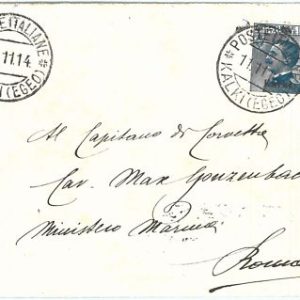 E ITALIANE
11.14
(EGEO)
POSTE
11.11
KALKI (EGEO)
Al Capitano di Corvetta
Cav. Max Gonzenbach
Ministero Marina
Roma